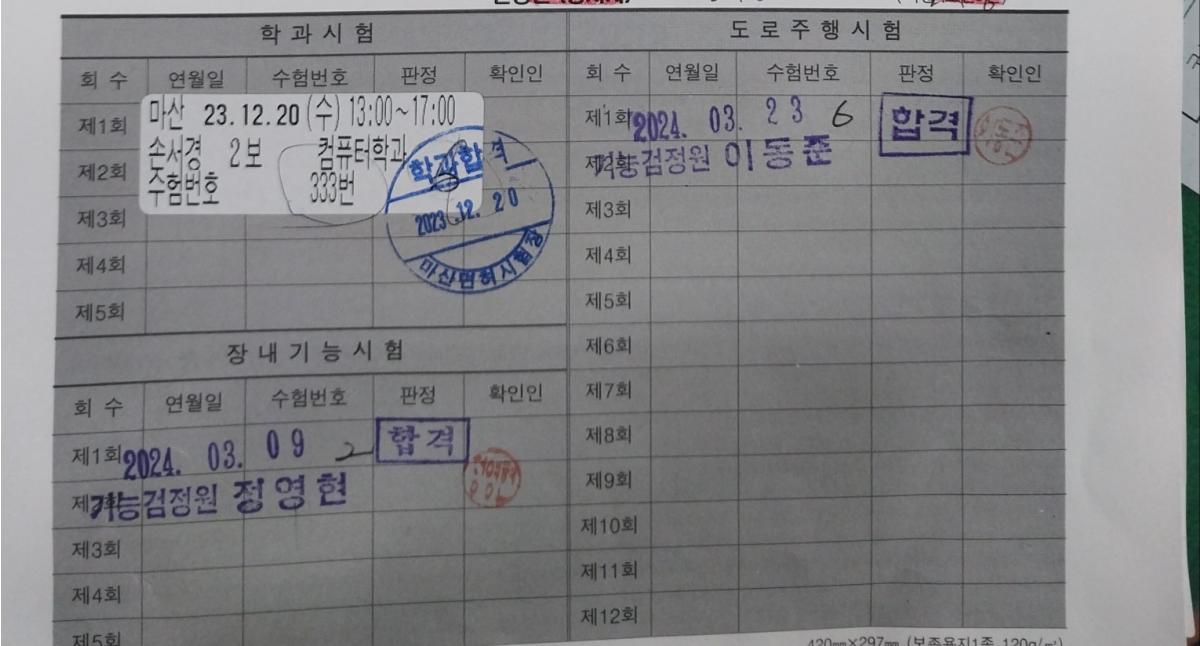 학과시험
회 수 연월일 수험번호 판정 확인인
제1회
마산 23.12.20 (수) 13:00~17:00
손서경 2보 컴퓨터학과
수험번호 333번
제2회
제3회
제4회
제5회
학과합격
2023.12.20
마산면허시험장
장내기능시험
회 수 연월일 수험번호 판정 확인인
제1회 2024. 03. 09 2 합격
기능검정원 정영현
제3회
제4회
제5회
도로주행시험
회 수 연월일 수험번호 판정 확인인
제1회 2024. 03. 23 6 합격
기능검정원 이동준
제3회
제4회
제5회
제6회
제7회
제8회
제9회
제10회
제11회
제12회
420㎜×297㎜ (보존용지1종 120g/㎡)